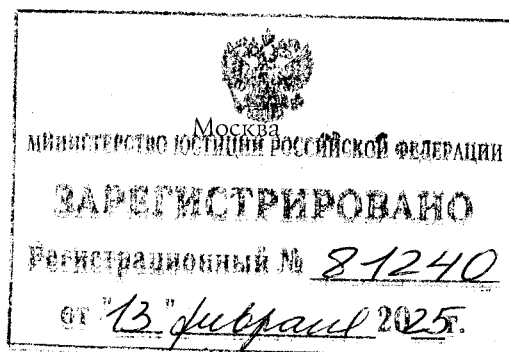 Москва
МИНИСТЕРСТВО ЮСТИЦИИ РОССИЙСКОЙ ФЕДЕРАЦИИ
ЗАРЕГИСТРИРОВАНО
Регистрационный № 81240
от "13" февраля 2025г.